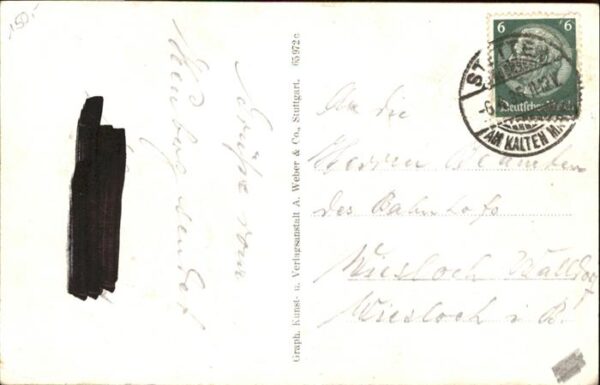 150.-
Grüße vom
Graph. Kunst- u. Verlagsanstalt A. Weber & Co., Stuttgart. 65972c
6 6
Deutsches Reich
STETTEN
AM KALTEN M
An die
Herren Beamten
des Bahnhofs
Wiesloch Walldorf
Wiesloch i. B.